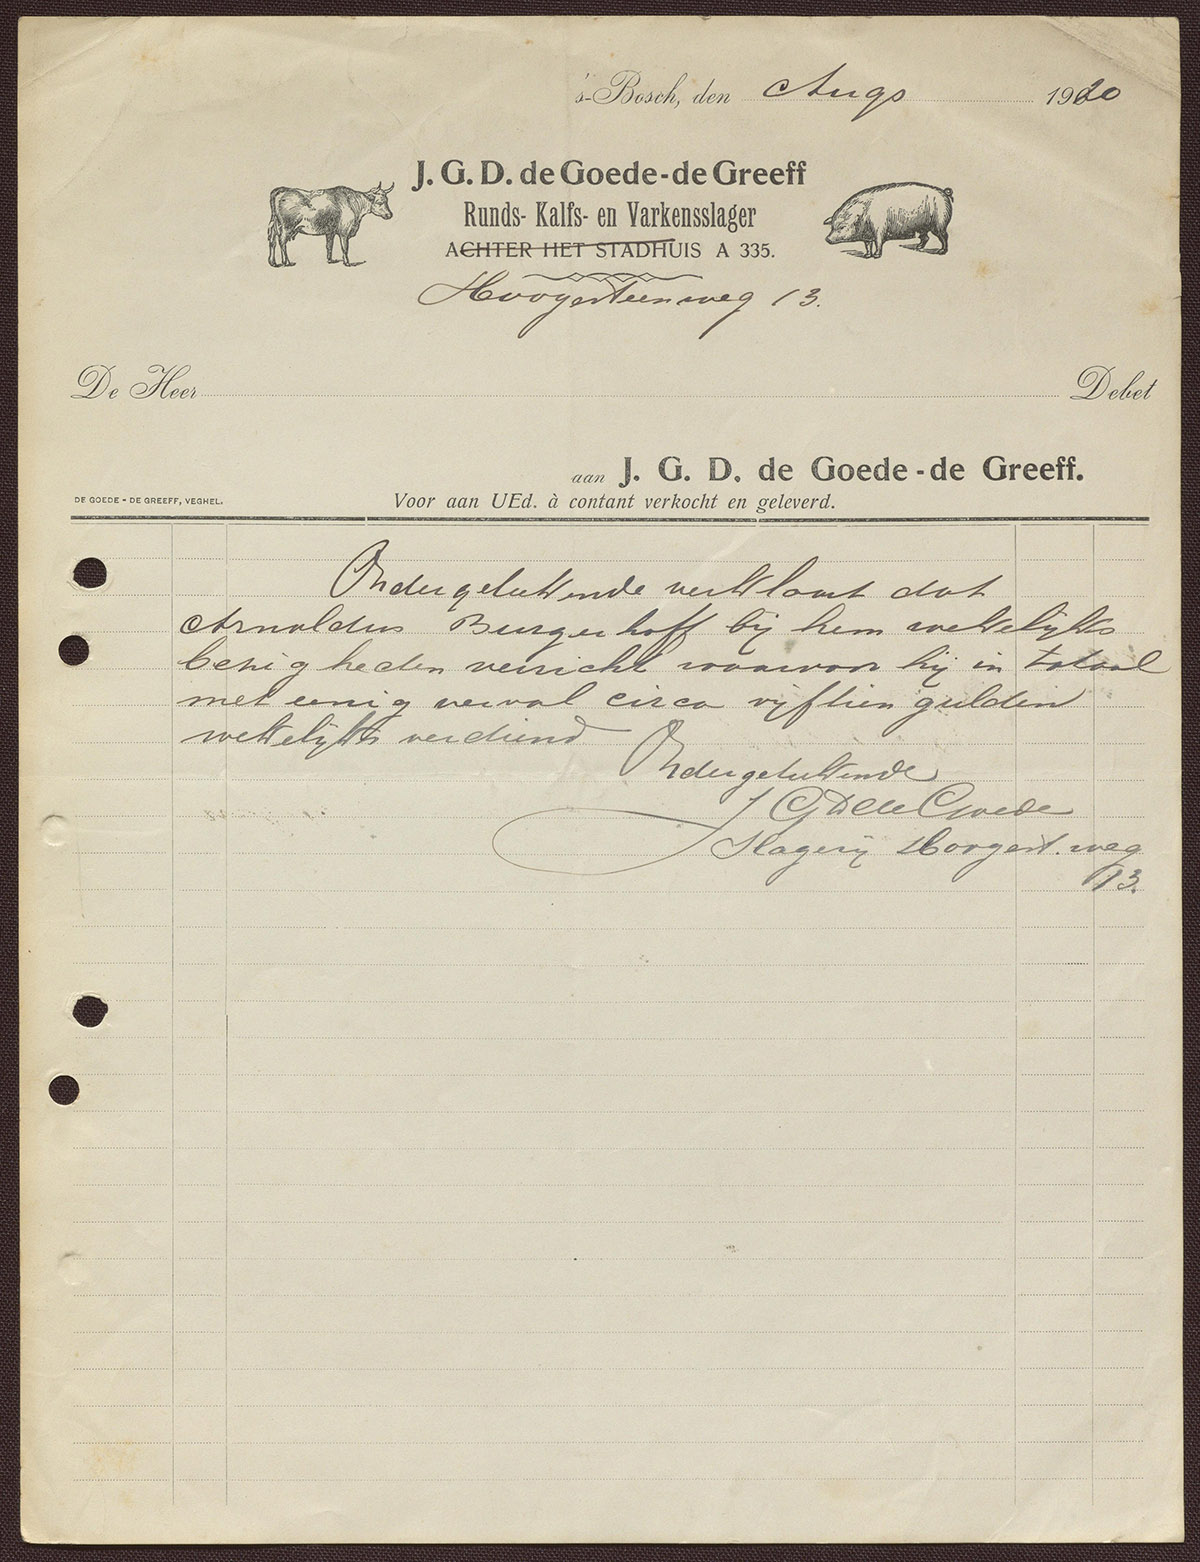 's-Bosch, den Augs 1920
J. G. D. de Goede-de Greeff
Runds- Kalfs- en Varkensslager
ACHTER HET STADHUIS A 335.
Hoogesteenweg 13.
De Heer Debet
aan J. G. D. de Goede-de Greeff.
DE GOEDE - DE GREEFF, VEGHEL.
Voor aan UEd. à contant verkocht en geleverd.
Ondergeteekende verklaart dat
Arnoldus Burgerhoff bij hem wekelijks
bezigheden verricht waarvoor hij in totaal
met eenig verval circa vijftien gulden
wekelijks verdiend
Ondergeteekende
J G D de Goede
Slagerij Hoogest. weg
13.